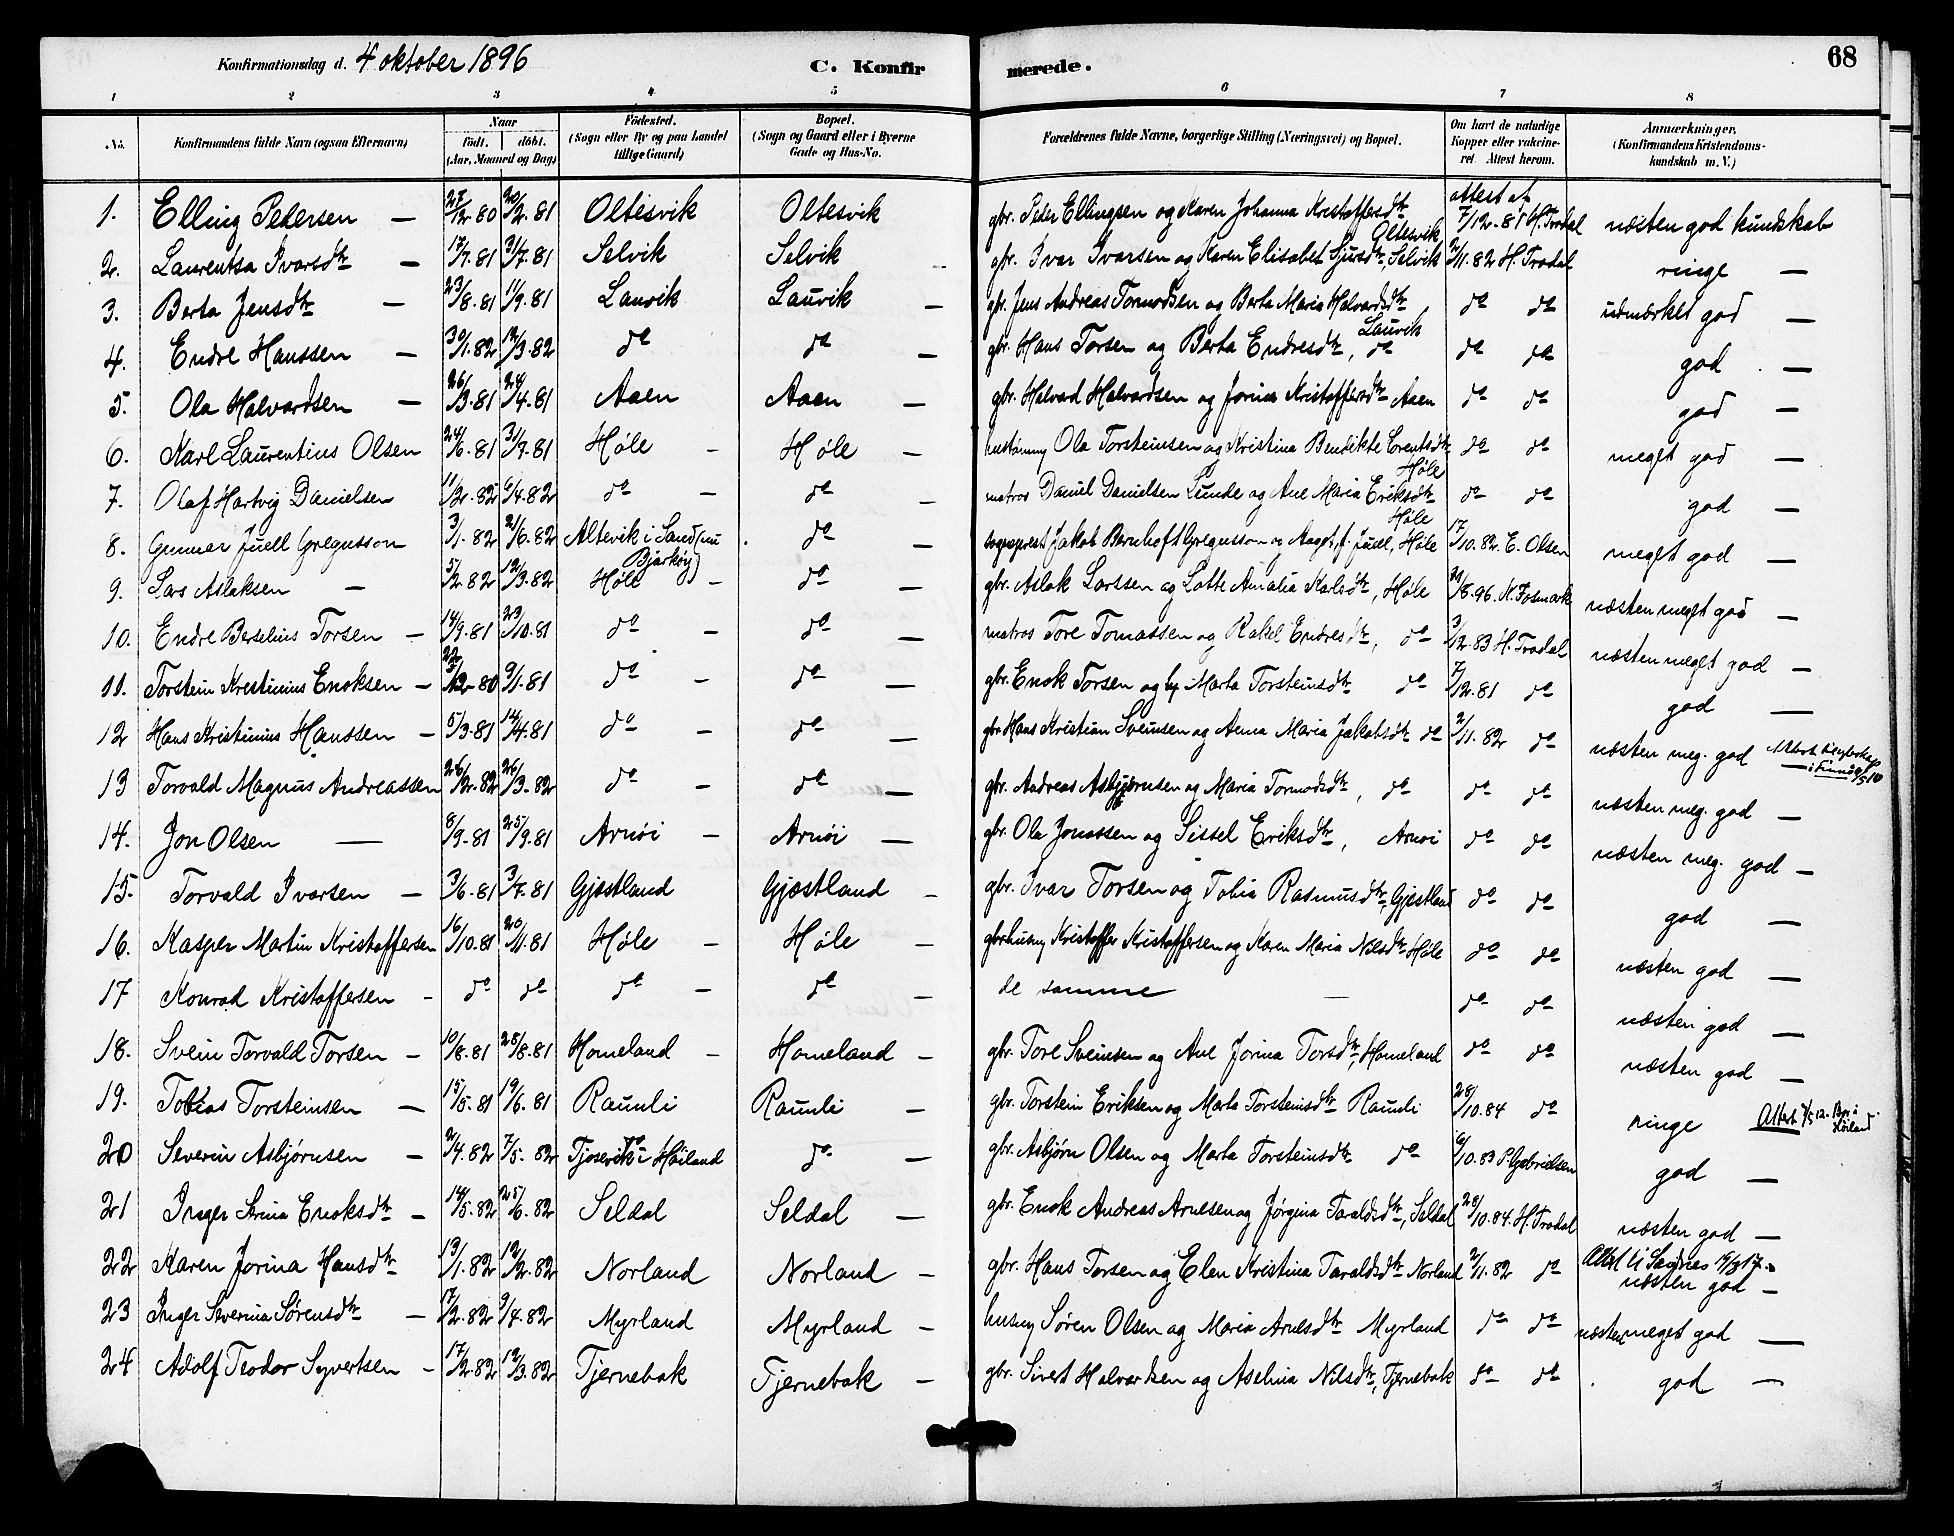 Konfirmationsdag d. 4 oktober 1896
C. Konfir merede.
68
1 2 3 4 5 6 7 8
No. Konfirmandens fulde Navn (ogsaa Efternavn) Naar Födt. döbt. (Aar, Maaned og Dag) Födested. (Sogn eller By og paa Landet tillige Gaard) Bopæl. (Sogn og Gaard eller i Byerne Gade og Hus-No. Forældrenes fulde Navne, borgerlige Stilling (Næringsvei) og Bopæl. Om havt de naturlige Kopper eller vakcineret. Attest herom. Anmærkninger. (Konfirmandens Kristendomskundskab m. V.)
1. Elling Pedersen — 27/12.80 20/2.81 Oltesvik Oltesvik gbr. Peter Ellingsen og Karen Johanna Kristoffersdtr Oltesvik attest af 7/12.81 H. Tradal næsten god kundskab
2. Laurentsa Ivarsdtr — 17/7.81 31/7.81 Selvik Selvik gbr. Ivar Ivarsen og Karen Elisabet Sjursdtr, Selvik 2/11.82 H. Tradal ringe —
3. Berta Jensdtr — 23/8.81 11/9.81 Lauvik Lauvik — gbr. Jens Andreas Tormodsen og Berta Maria Halvardsdtr, Lauvik do do udmærket god —
4. Endre Hanssen — 30/1.82 12/3.82 do do — gbr. Hans Torsen og Berta Endresdtr, do do do god —
5. Ola Halvardsen — 26/3.81 24/4.81 Aaen Aaen — gbr. Halvard Halvardsen og Jorina Kristoffersdtr Aaen do do god —
6. Karl Laurentius Olsen 24/6.81 31/7.81 Høle — Høle — Ola Torsteinsen og Kristina Bendikte Lorentsdtr Høle do do meget god —
7. Olaf Hartvig Danielsen 11/2.82 6/4.82 do — do — matros Daniel Danielsen Lunde og Ane Maria Eriksdtr Høle do do god —
8. Gunnar Juell Gregusson 3/1.82 21/6.82 Altevik i Sand (nu Bjarkøy) do — sogneprest Jakob Bernhoft Gregusson og Aagot f. Juell, Høle 17/10.82 E. Olsen meget god —
9. Lars Aslaksen — 5/2.82 12/3.82 Høle — do — gbr. Aslak Larssen og Lotte Amalia Karlsdtr, Høle /8.96. K. Fosmark næsten meget god —
10. Endre Berselius Torsen — 14/9.81 23/10.81 do — do — matros Tore Tomassen og Rakel Endresdtr, do 3/12.83 H. Tradal næsten meget god —
11. Torstein Kristinius Enoksen — /12.80 9/1.81 do — do — gbr. Enok Torsen og Marta Torsteinsdtr do 7/12.81 do god —
12 Hans Kristinius Hanssen — 5/3.81 14/4.81 do — do — gbr Hans Kristian Sveinsen og Anna Maria Jakobsdtr do 2/11.82 do næsten meg. god
13 Torvald Magnus Andreassen 26/2.82 26/3.82 do — do — gbr. Andreas Asbjørnsen og Maria Tormodsdtr, do do do næsten meg. god —
14. Jon Olsen — 8/9.81 25/9.81 Arnöi — Arnöi — gbr. Ola Jonassen og Sissel Eriksdtr, Arnöi do do næsten meg. god —
15. Torvald Ivarsen — 3/6.81 3/7.81 Gjæstland Gjæstland — gbr. Ivar Torsen og Tobia Rasmusdtr, Gjæstland do do god —
16. Kasper Martin Kristoffersen 16/10.81 20/11.81 Høle — Høle — Kristoffer Kristoffersen og Karen Maria Nilsdtr Høle do do næsten god —
17 Konrad Kristoffersen — do do do — do — de samme — do do næsten god —
18. Svein Torvald Torsen — 10/8.81 28/8.81 Homeland — Homeland — gbr. Tore Sveinsen og Ane Jorina Torsdtr, Homeland do do næsten god —
19. Tobias Torsteinsen — 15/5.81 19/6.81 Raunli Raunli — gbr. Torstein Eriksen og Marta Torsteinsdtr Raunli 28/10.84 do ringe Attest
20 Severin Asbjørnsen — 2/4.82 7/5.82 Tjosevik i Høiland do — gbr. Asbjørn Olsen og Marta Torsteinsdtr do 6/10.83 P. Gabrielsen god —
21 Inger Serina Enoksdtr — 14/5.82 25/6.82 Seldal Seldal — gbr. Enok Andreas Arnesen og Jørgina Taraldsdtr, Seldal 28/10.84. H. Tradal næsten god —
22 Karen Jorina Hansdtr 13/1.82 12/2.82 Norland Norland — gbr. Hans Torsen og Elen Kristina Taraldsdtr Norland 2/11.82 do Attest til Sandnes 19/3 17. næsten god —
23 Inger Severina Sørensdtr — 17/2.82 9/4.82 Myrland Myrland — husmg Søren Olsen og Maria Arnesdtr Myrland do do næsten meget god —
24 Adolf Teodor Syvertsen — 17/2.82 12/3.82 Tjernebak Tjernebak — gbr. Sivert Halvardsen og Aselina Nilsdtr, Tjernebak do do god —